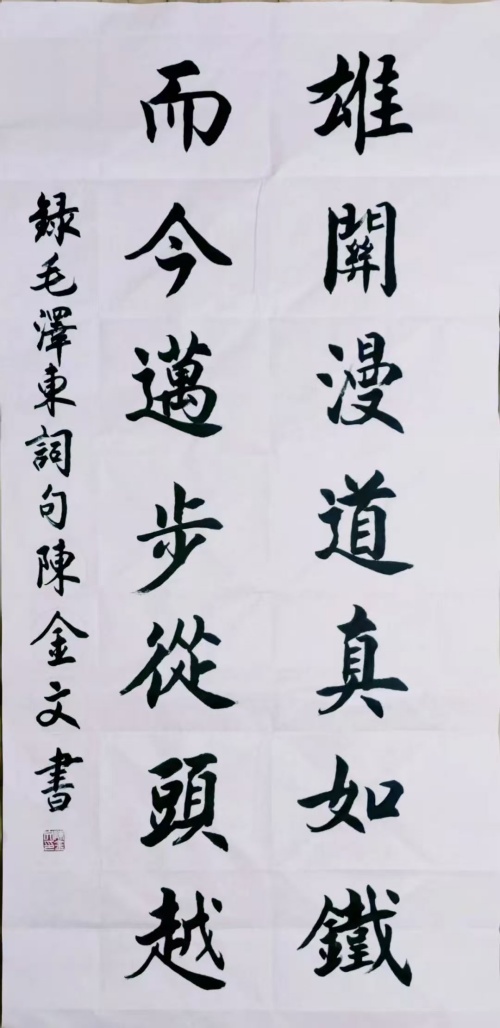 雄關漫道真如鐵
而今邁步從頭越
録毛澤東詞句陳金文書